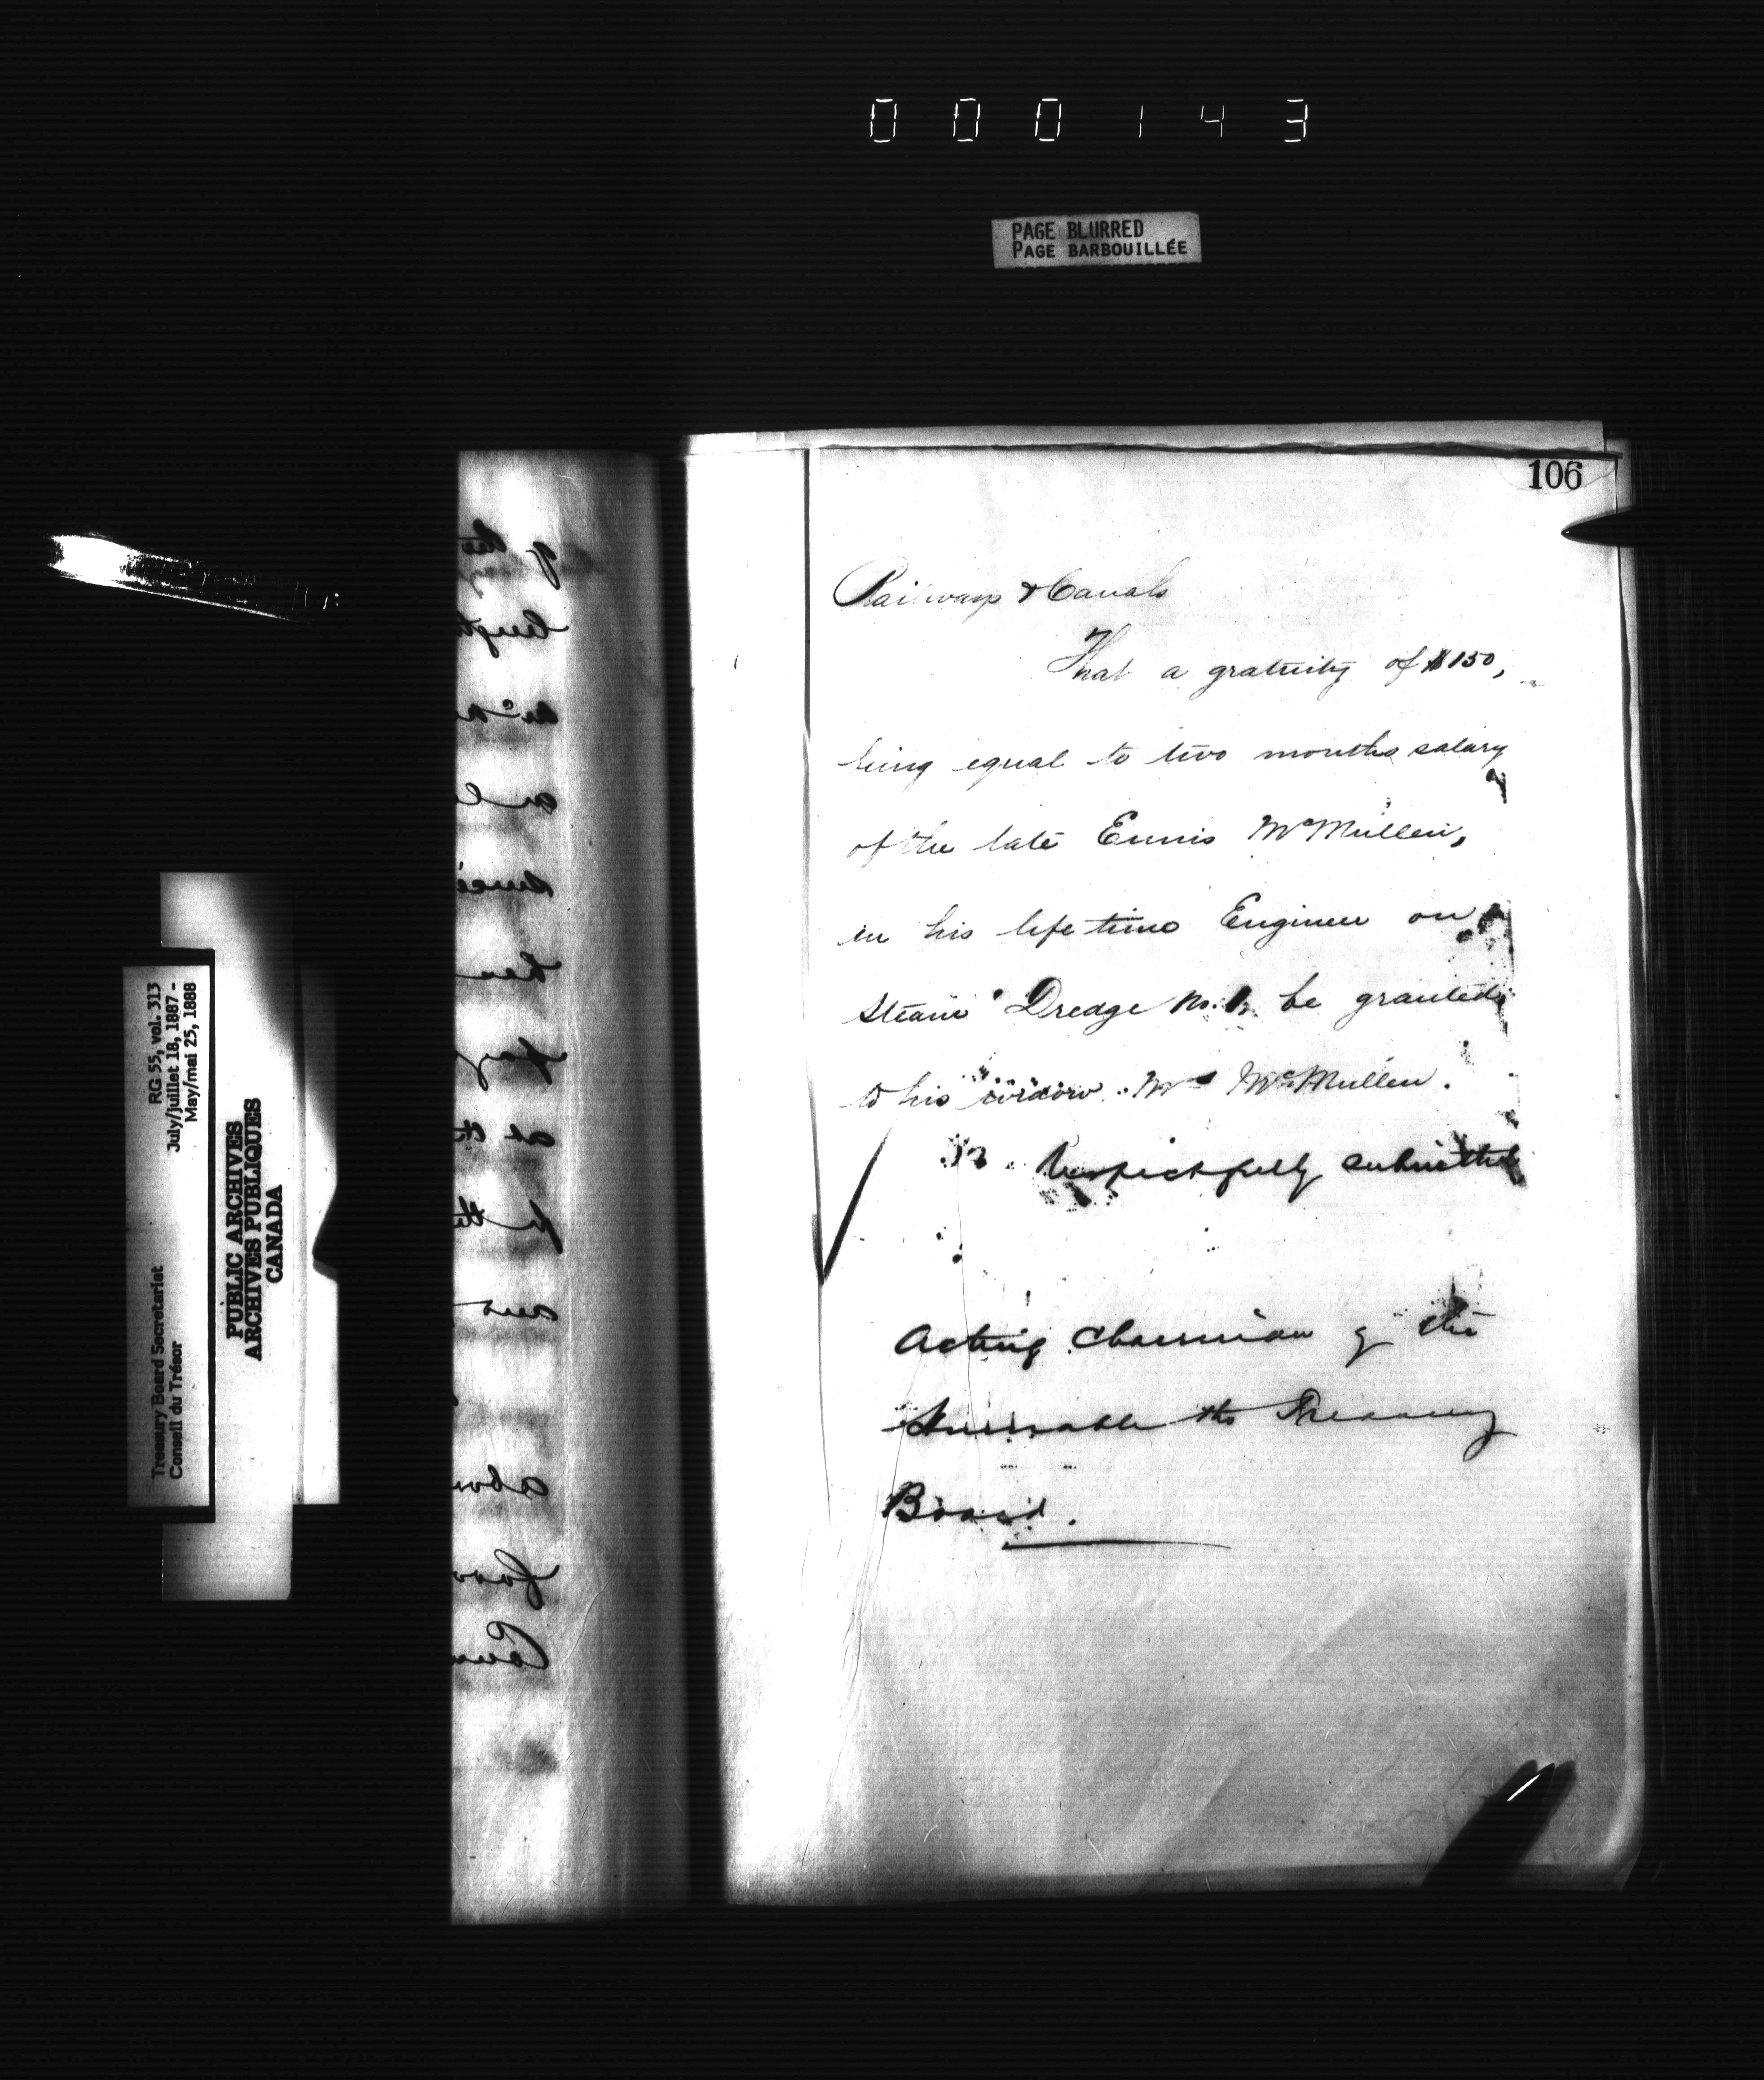 000143
PAGE BLURRED
PAGE BARBOUILLÉE
106
Railways & Canals
That a gratuity of $150,
being equal to two months salary
of the late Ennis McMullen,
in his life time Engineer on
Steam Dredge No. 1, be granted
to his widow Mrs McMullen.
Respectfully submitted
Acting Chairman of the
Honorable the Treasury
Board.
RG 55, vol. 313
July/juillet 18, 1887 -
May/mai 25, 1888
Treasury Board Secretariat
Conseil du Trésor
PUBLIC ARCHIVES
ARCHIVES PUBLIQUES
CANADA